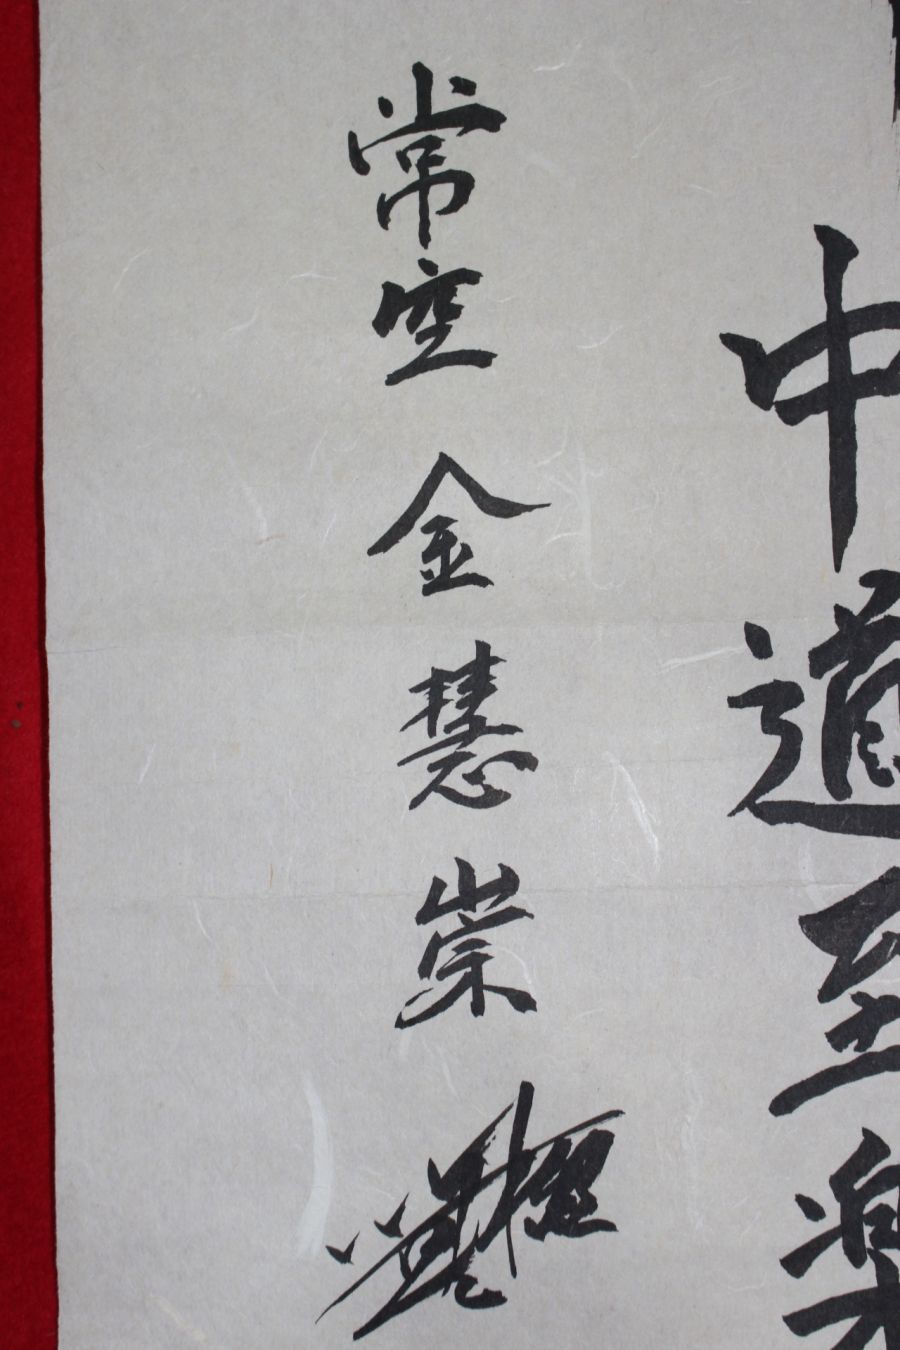 中道至樂
常空 金慧崇